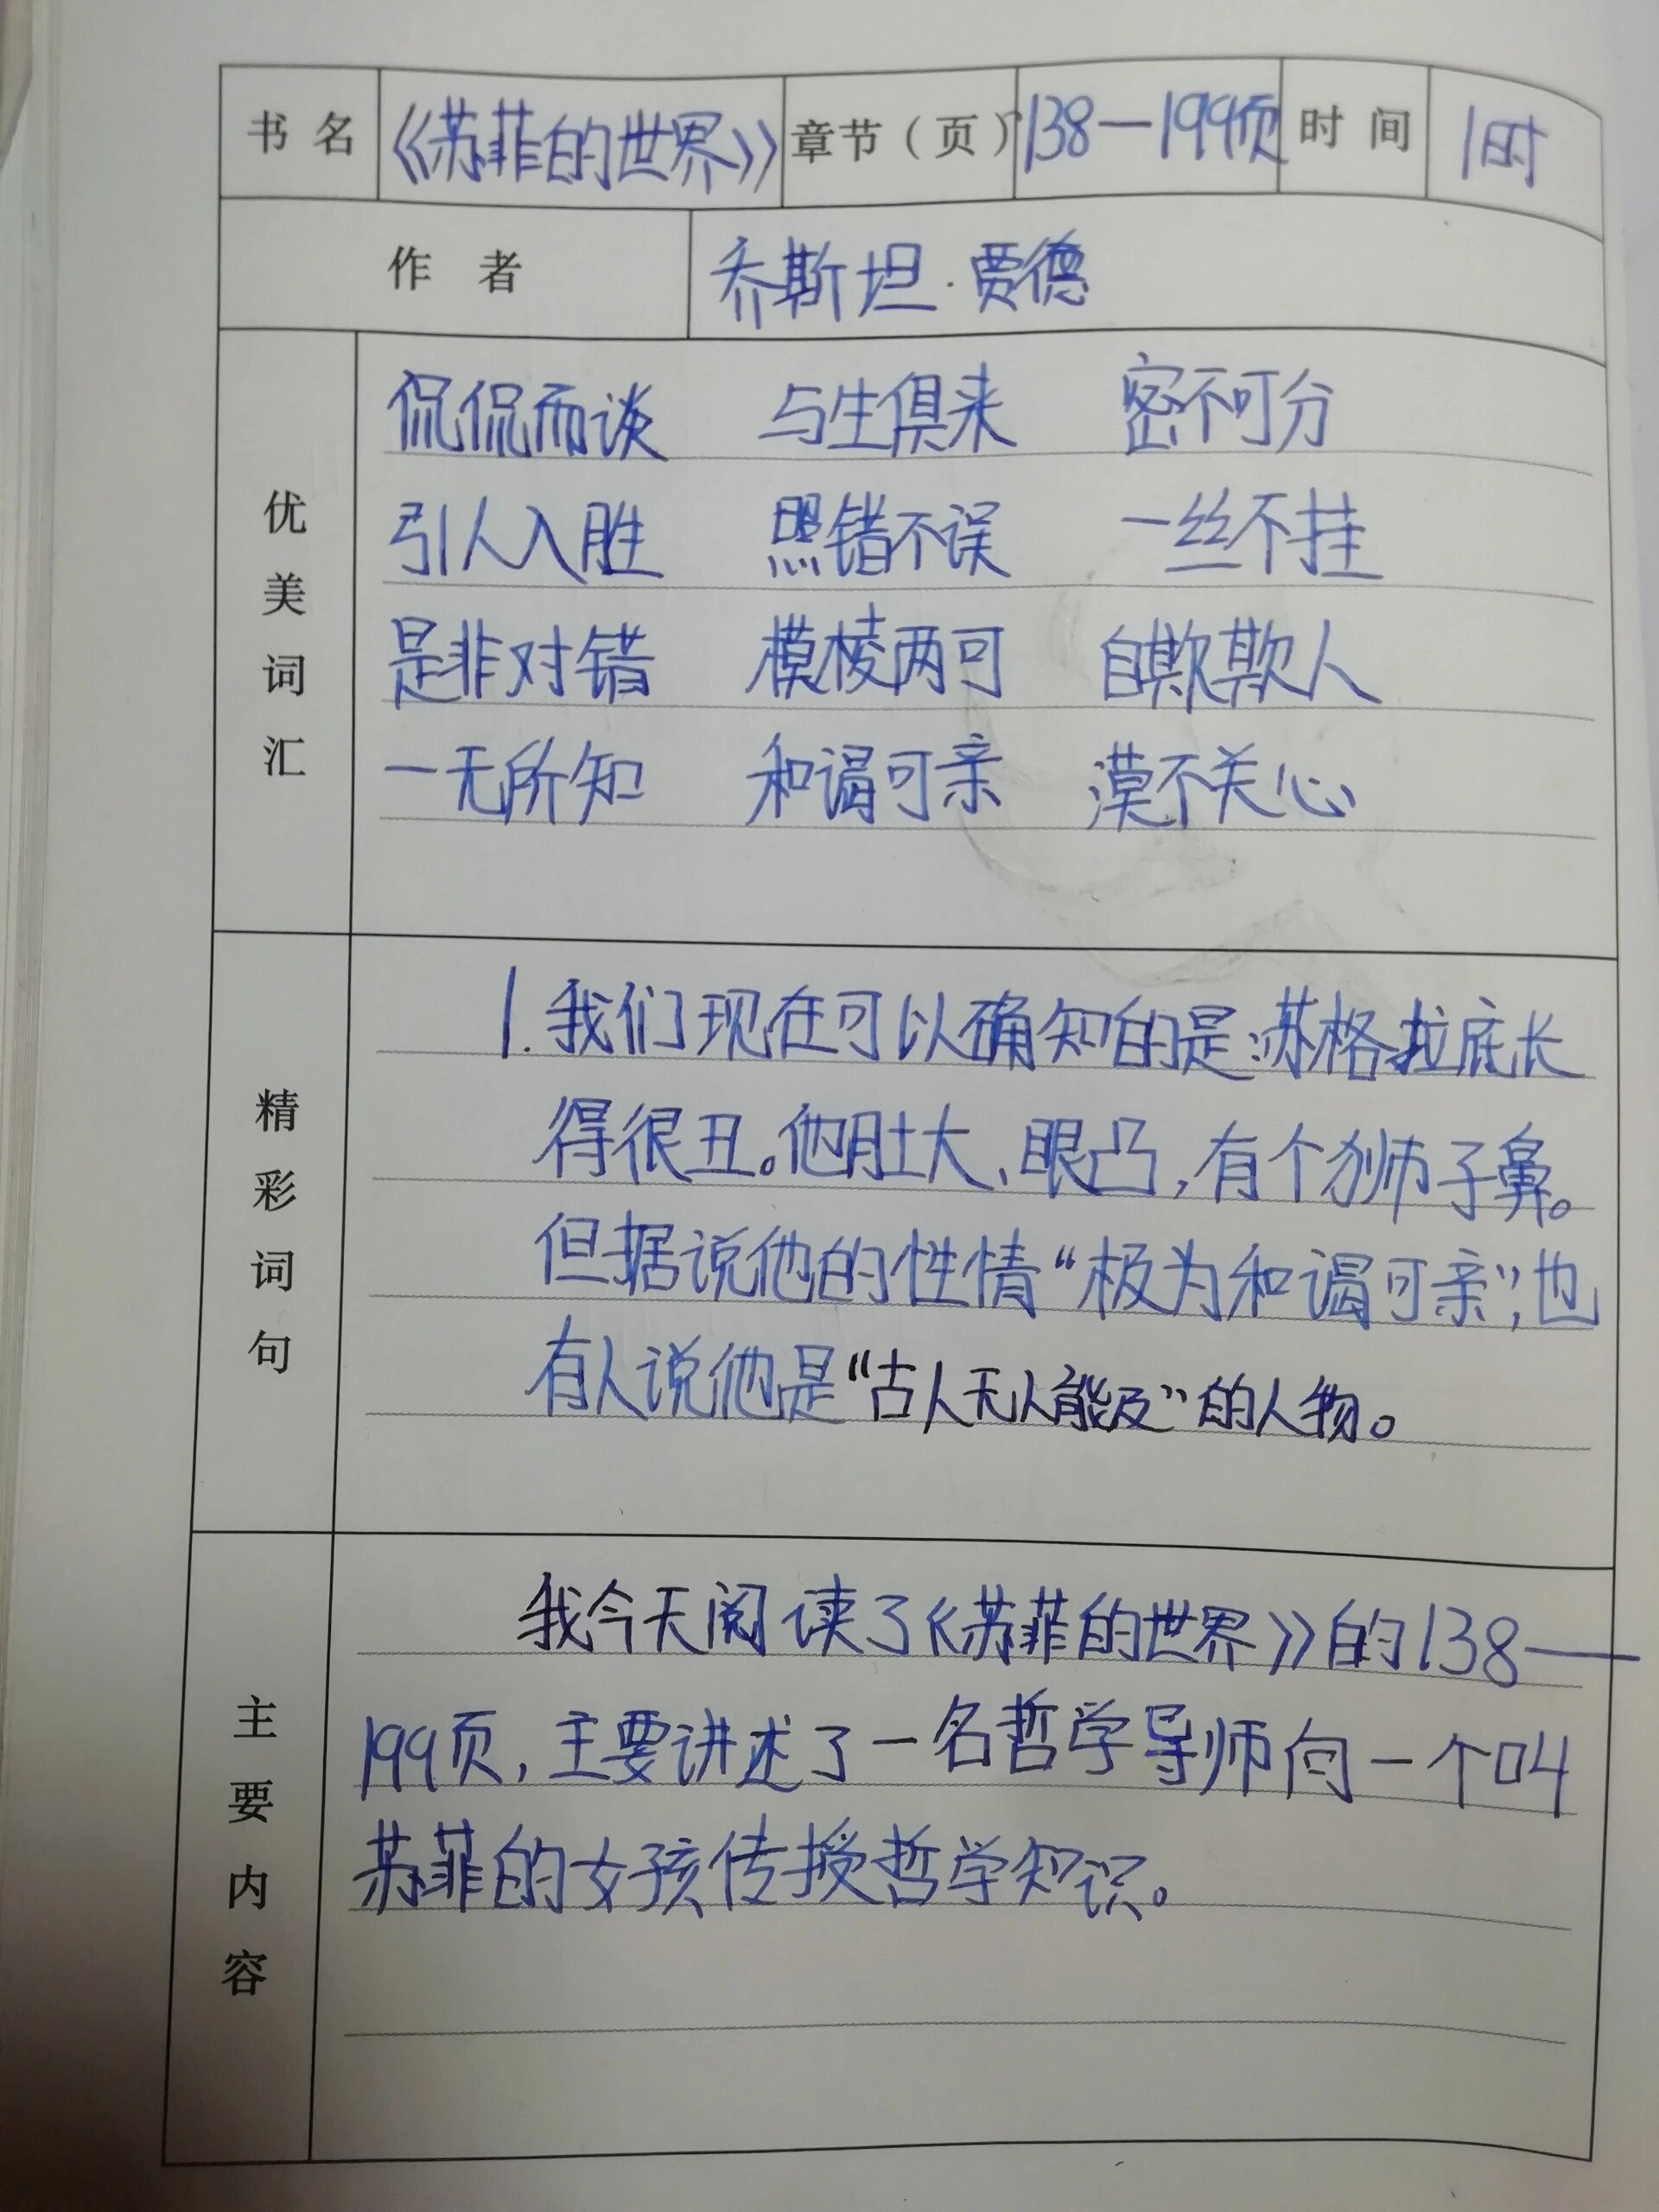 书名 《苏菲的世界》 章节（页） 138—199页 时间 1时
作者 乔斯坦·贾德
优美词汇
侃侃而谈 与生俱来 密不可分
引人入胜 照错不误 一丝不挂
是非对错 模棱两可 自欺欺人
一无所知 和谒可亲 漠不关心
精彩词句
1.我们现在可以确知的是:苏格拉底长
得很丑。他肚大、眼凸,有个狮子鼻。
但据说他的性情“极为和谒可亲”,也
有人说他是“古人无人能及”的人物。
主要内容
我今天阅读了《苏菲的世界》的138—
199页,主要讲述了一名哲学导师向一个叫
苏菲的女孩传授哲学知识。